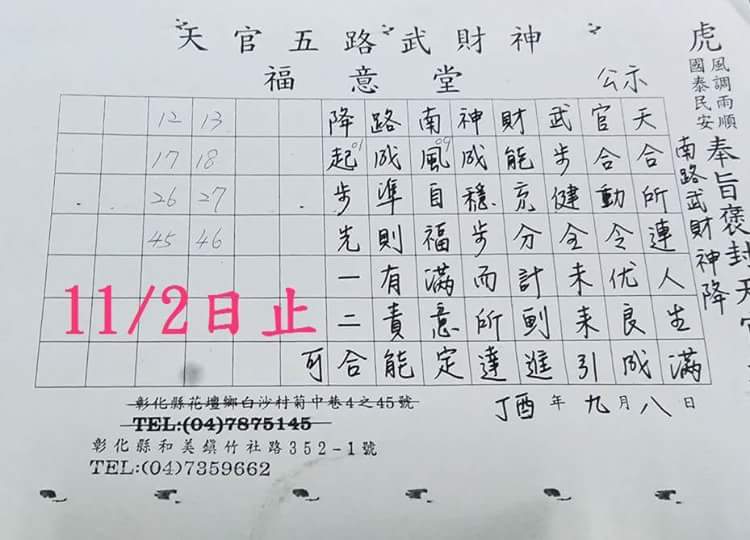 天官五路武財神
福意堂
公示
虎
風調雨順
國泰民安
奉旨褒封天官
南路武財神降
天合所連人生滿
官合動令优良成
武步健全未来引
財能充分計劃進
神成穩步而所達
南風自福滿意定
09
路成準則有責能
降起步先一二合
01
可
12 13
17 18
26 27
45 46
11/2日止
丁酉年九月八日
彰化縣花壇鄉白沙村菊中巷4之45號
TEL:(04)7875145
彰化縣和美鎮竹社路352-1號
TEL:(04)7359662